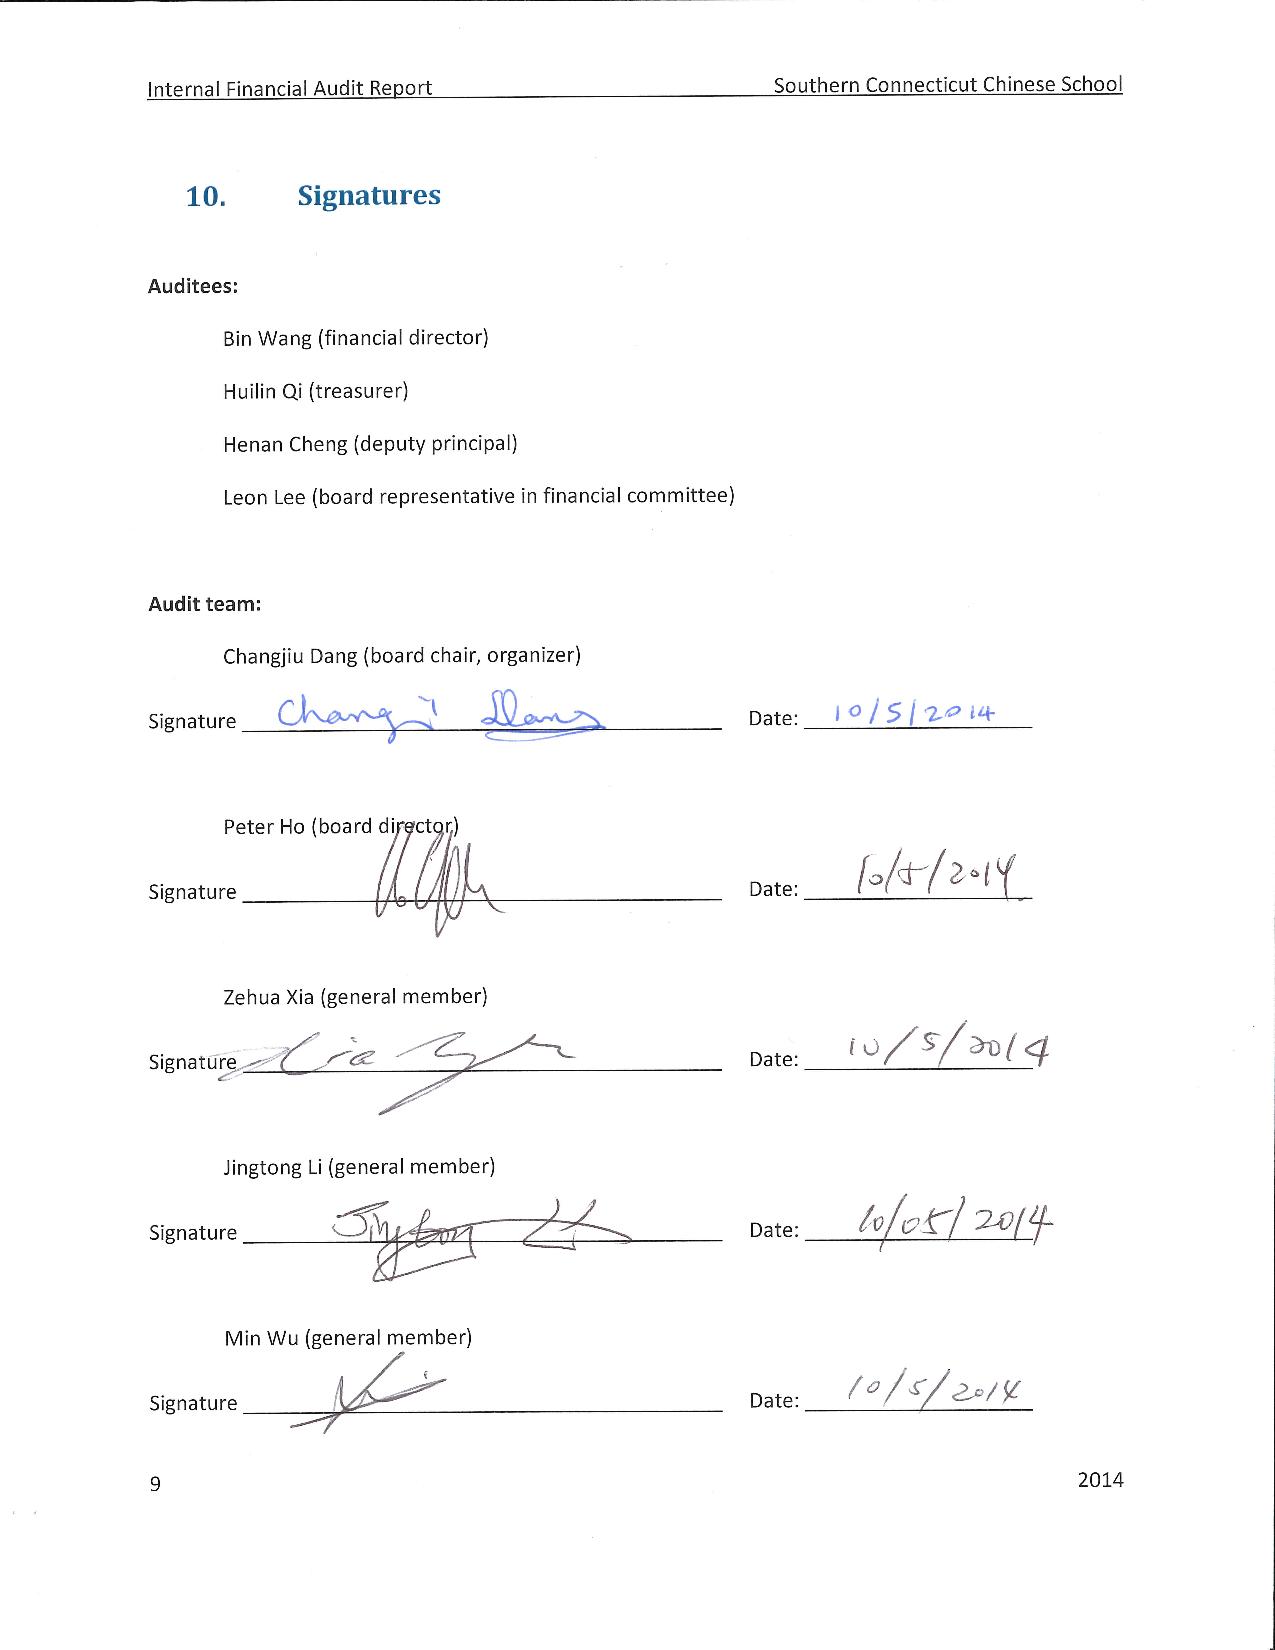 Internal Financial Audit Report Southern Connecticut Chinese School
10. Signatures
Auditees:
Bin Wang (financial director)
Huilin Qi (treasurer)
Henan Cheng (deputy principal)
Leon Lee (board representative in financial committee)
Audit team:
Changjiu Dang (board chair, organizer)
Signature Date: 10/5/2014
Peter Ho (board director)
Signature Date: 10/5/2014
Zehua Xia (general member)
Signature Xia Date: 10/5/2014
Jingtong Li (general member)
Signature Jingtong Li Date: 10/05/2014
Min Wu (general member)
Signature Date: 10/5/2014
9 2014